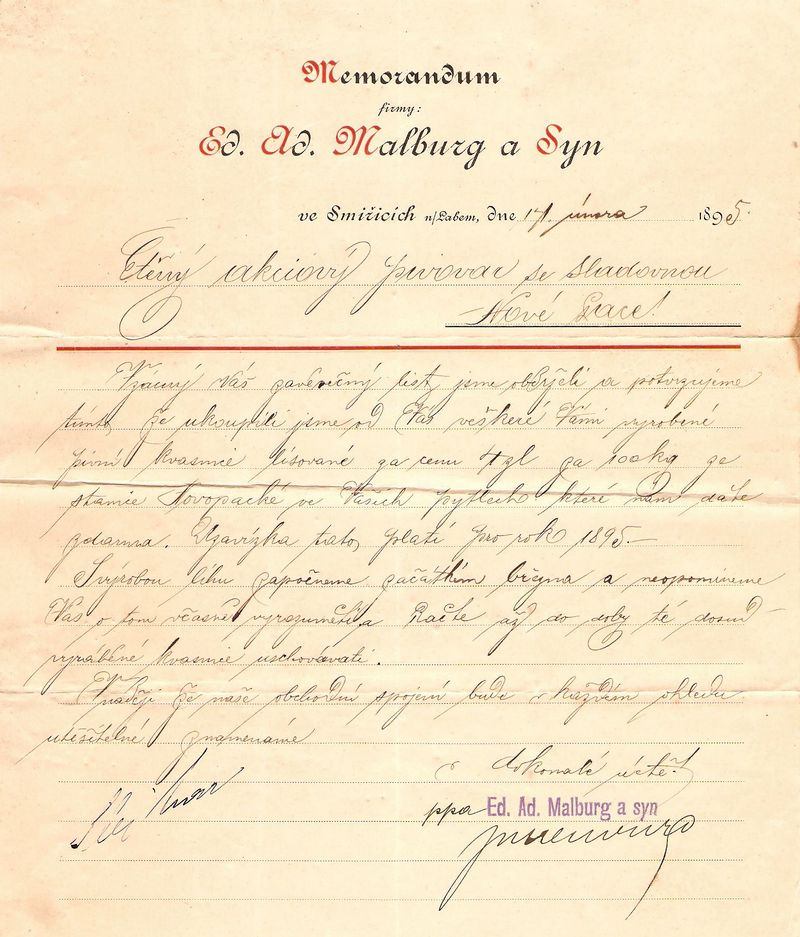 Memorandum
firmy:
Ed. Ad. Malburg a Syn
ve Smiřicích n/Labem, dne 14. února 1895.
Ctěný akciový pivovar se sladovnou
Nové Pace!
Vzácný Váš závěrečný list jsme obdrželi a potvrzujeme
tímto, že ukoupili jsme od Vás veškeré Vámi vyrobené
pivní kvasnice lisované za cenu 4 zl za 100 kg ze
stanice Novopacké ve Vašich pytlech které nám dáte
zdarma. Uzavírka tato platí pro rok 1895.—
S výrobou lihu započneme začátkem března a neopomineme
Vás o tom včasně vyrozuměti a Račte až do doby té dosud
vyráběné kvasnice uschovávati.
V naději že naše obchodní spojení bude v každém ohledu
utěšitelné znamenáme
v dokonalé úctě!
ppa Ed. Ad. Malburg a syn